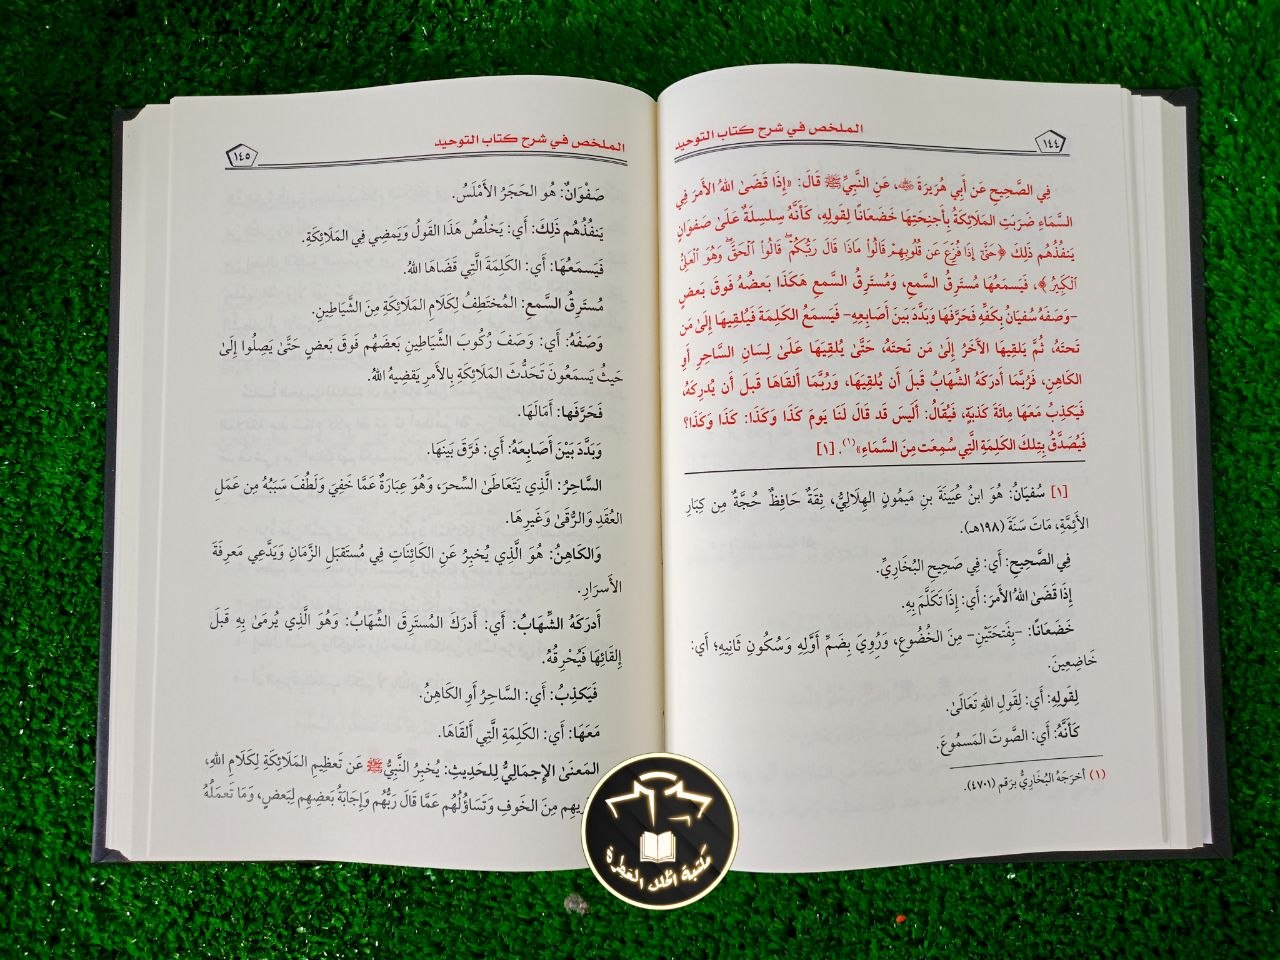 الملخص في شرح كتاب التوحيد
١٤٤
فِي الصَّحِيحِ عَن أَبِي هُرَيرَةَ ﵁، عَنِ النَّبِيِّ ﷺ قَالَ: «إِذَا قَضَىٰ اللهُ الأَمرَ فِي
السَّمَاءِ ضَرَبَتِ المَلَائِكَةُ بِأَجنِحَتِهَا خَضَعَانًا لِقَولِهِ، كَأَنَّهُ سِلسِلَةٌ عَلَىٰ صَفوَانٍ
يَنفُذُهُم ذَلِكَ ﴿حَتَّىٰٓ إِذَا فُزِّعَ عَن قُلُوبِهِمۡ قَالُواْ مَاذَا قَالَ رَبُّكُمۡۖ قَالُواْ ٱلۡحَقَّۖ وَهُوَ ٱلۡعَلِيُّ
ٱلۡكَبِيرُ﴾، فَيَسمَعُهَا مُستَرِقُ السَّمعِ، وَمُستَرِقُ السَّمعِ هَكَذَا بَعضُهُ فَوقَ بَعضٍ
-وَصَفَهُ سُفيَانُ بِكَفِّهِ فَحَرَّفَهَا وَبَدَّدَ بَينَ أَصَابِعِهِ- فَيَسمَعُ الكَلِمَةَ فَيُلقِيهَا إِلَىٰ مَن
تَحتَهُ، ثُمَّ يَلقِيهَا الآخَرُ إِلَىٰ مَن تَحتَهُ، حَتَّىٰ يُلقِيَهَا عَلَىٰ لِسَانِ السَّاحِرِ أَوِ
الكَاهِنِ، فَرُبَّمَا أَدرَكَهُ الشِّهَابُ قَبلَ أَن يُلقِيَهَا، وَرُبَّمَا أَلقَاهَا قَبلَ أَن يُدرِكَهُ،
فَيَكذِبُ مَعَهَا مِائَةَ كَذبَةٍ، فَيُقَالُ: أَلَيسَ قَد قَالَ لَنَا يَومَ كَذَا وَكَذَا: كَذَا وَكَذَا؟
فَيُصَدَّقُ بِتِلكَ الكَلِمَةِ الَّتِي سُمِعَت مِنَ السَّمَاءِ»(١). [١]
[١] سُفيَانُ: هُوَ ابنُ عُيَينَةَ بنِ مَيمُونٍ الهِلَالِيُّ، ثِقَةٌ حَافِظٌ حُجَّةٌ مِن كِبَارِ
الأَئِمَّةِ، مَاتَ سَنَةَ (١٩٨هـ).
فِي الصَّحِيحِ: أَي: فِي صَحِيحِ البُخَارِيِّ.
إِذَا قَضَىٰ اللهُ الأَمرَ: أَي: إِذَا تَكَلَّمَ بِهِ.
خَضَعَانًا: -بِفَتحَتَيْنِ- مِنَ الخُضُوعِ، وَرُوِيَ بِضَمِّ أَوَّلِهِ وَسُكُونِ ثَانِيهِ؛ أَي:
خَاضِعِينَ.
لِقَولِهِ: أَي: لِقَولِ اللهِ تَعَالَىٰ.
كَأَنَّهُ: أَي: الصَّوتَ المَسمُوعَ.
(١) أَخرَجَهُ البُخَارِيُّ بِرَقم (٤٧٠١).
الملخص في شرح كتاب التوحيد
١٤٥
صَفْوَانٌ: هُو الحَجَرُ الأَمْلَسُ.
يَنفُذُهُم ذَلِكَ: أَي: يَخلُصُ هَذَا القَولُ وَيَمضِي فِي المَلَائِكَةِ.
فَيَسمَعُهَا: أَي: الكَلِمَةَ الَّتِي قَضَاهَا اللهُ.
مُستَرِقُ السَّمعِ: المُختَطِفُ لِكَلَامِ المَلَائِكَةِ مِنَ الشَّيَاطِينِ.
وَصَفَهُ: أَي: وَصَفَ رُكُوبَ الشَّيَاطِينِ بَعضَهُم فَوقَ بَعضٍ حَتَّىٰ يَصِلُوا إِلَىٰ
حَيثُ يَسمَعُونَ تَحَدُّثَ المَلَائِكَةِ بِالأَمرِ يَقضِيهِ اللهُ.
فَحَرَّفَها: أَمَالَهَا.
وَبَدَّدَ بَيْنَ أَصَابِعَهُ: أَي: فَرَّقَ بَينَهَا.
السَّاحِرُ: الَّذِي يَتَعَاطَىٰ السِّحرَ، وَهُوَ عِبَارَةٌ عَمَّا خَفِيَ وَلَطُفَ سَبَبُهُ مِن عَمَلِ
العُقَدِ وَالرُّقَىٰ وَغَيرِهَا.
وَالكَاهِنُ: هُوَ الَّذِي يُخبِرُ عَنِ الكَائِنَاتِ فِي مُستَقبَلِ الزَّمَانِ وَيَدَّعِي مَعرِفَةَ
الأَسرَارِ.
أَدرَكَهُ الشِّهَابُ: أَي: أَدرَكَ المُستَرِقَ الشِّهَابُ: وَهُوَ الَّذِي يُرمَىٰ بِهِ قَبلَ
إِلقَائِهَا فَيُحْرِقُهُ.
فَيَكذِبُ: أَي: السَّاحِرُ أَوِ الكَاهِنُ.
مَعَهَا: أَي: الكَلِمَةِ الَّتِي أَلقَاهَا.
المَعنَىٰ الإِجمَالِيُّ لِلحَدِيثِ: يُخبِرُ النَّبِيُّ ﷺ عَن تَعظِيمِ المَلَائِكَةِ لِكَلَامِ اللهِ،
مِنَ الخَوفِ وَتَسَاؤُلُهُم عَمَّا قَالَ رَبُّهُم وَإِجَابَةُ بَعضِهِم لِبَعضٍ، وَمَا تَعمَلُهُ
مكتبة الملك الفطرة